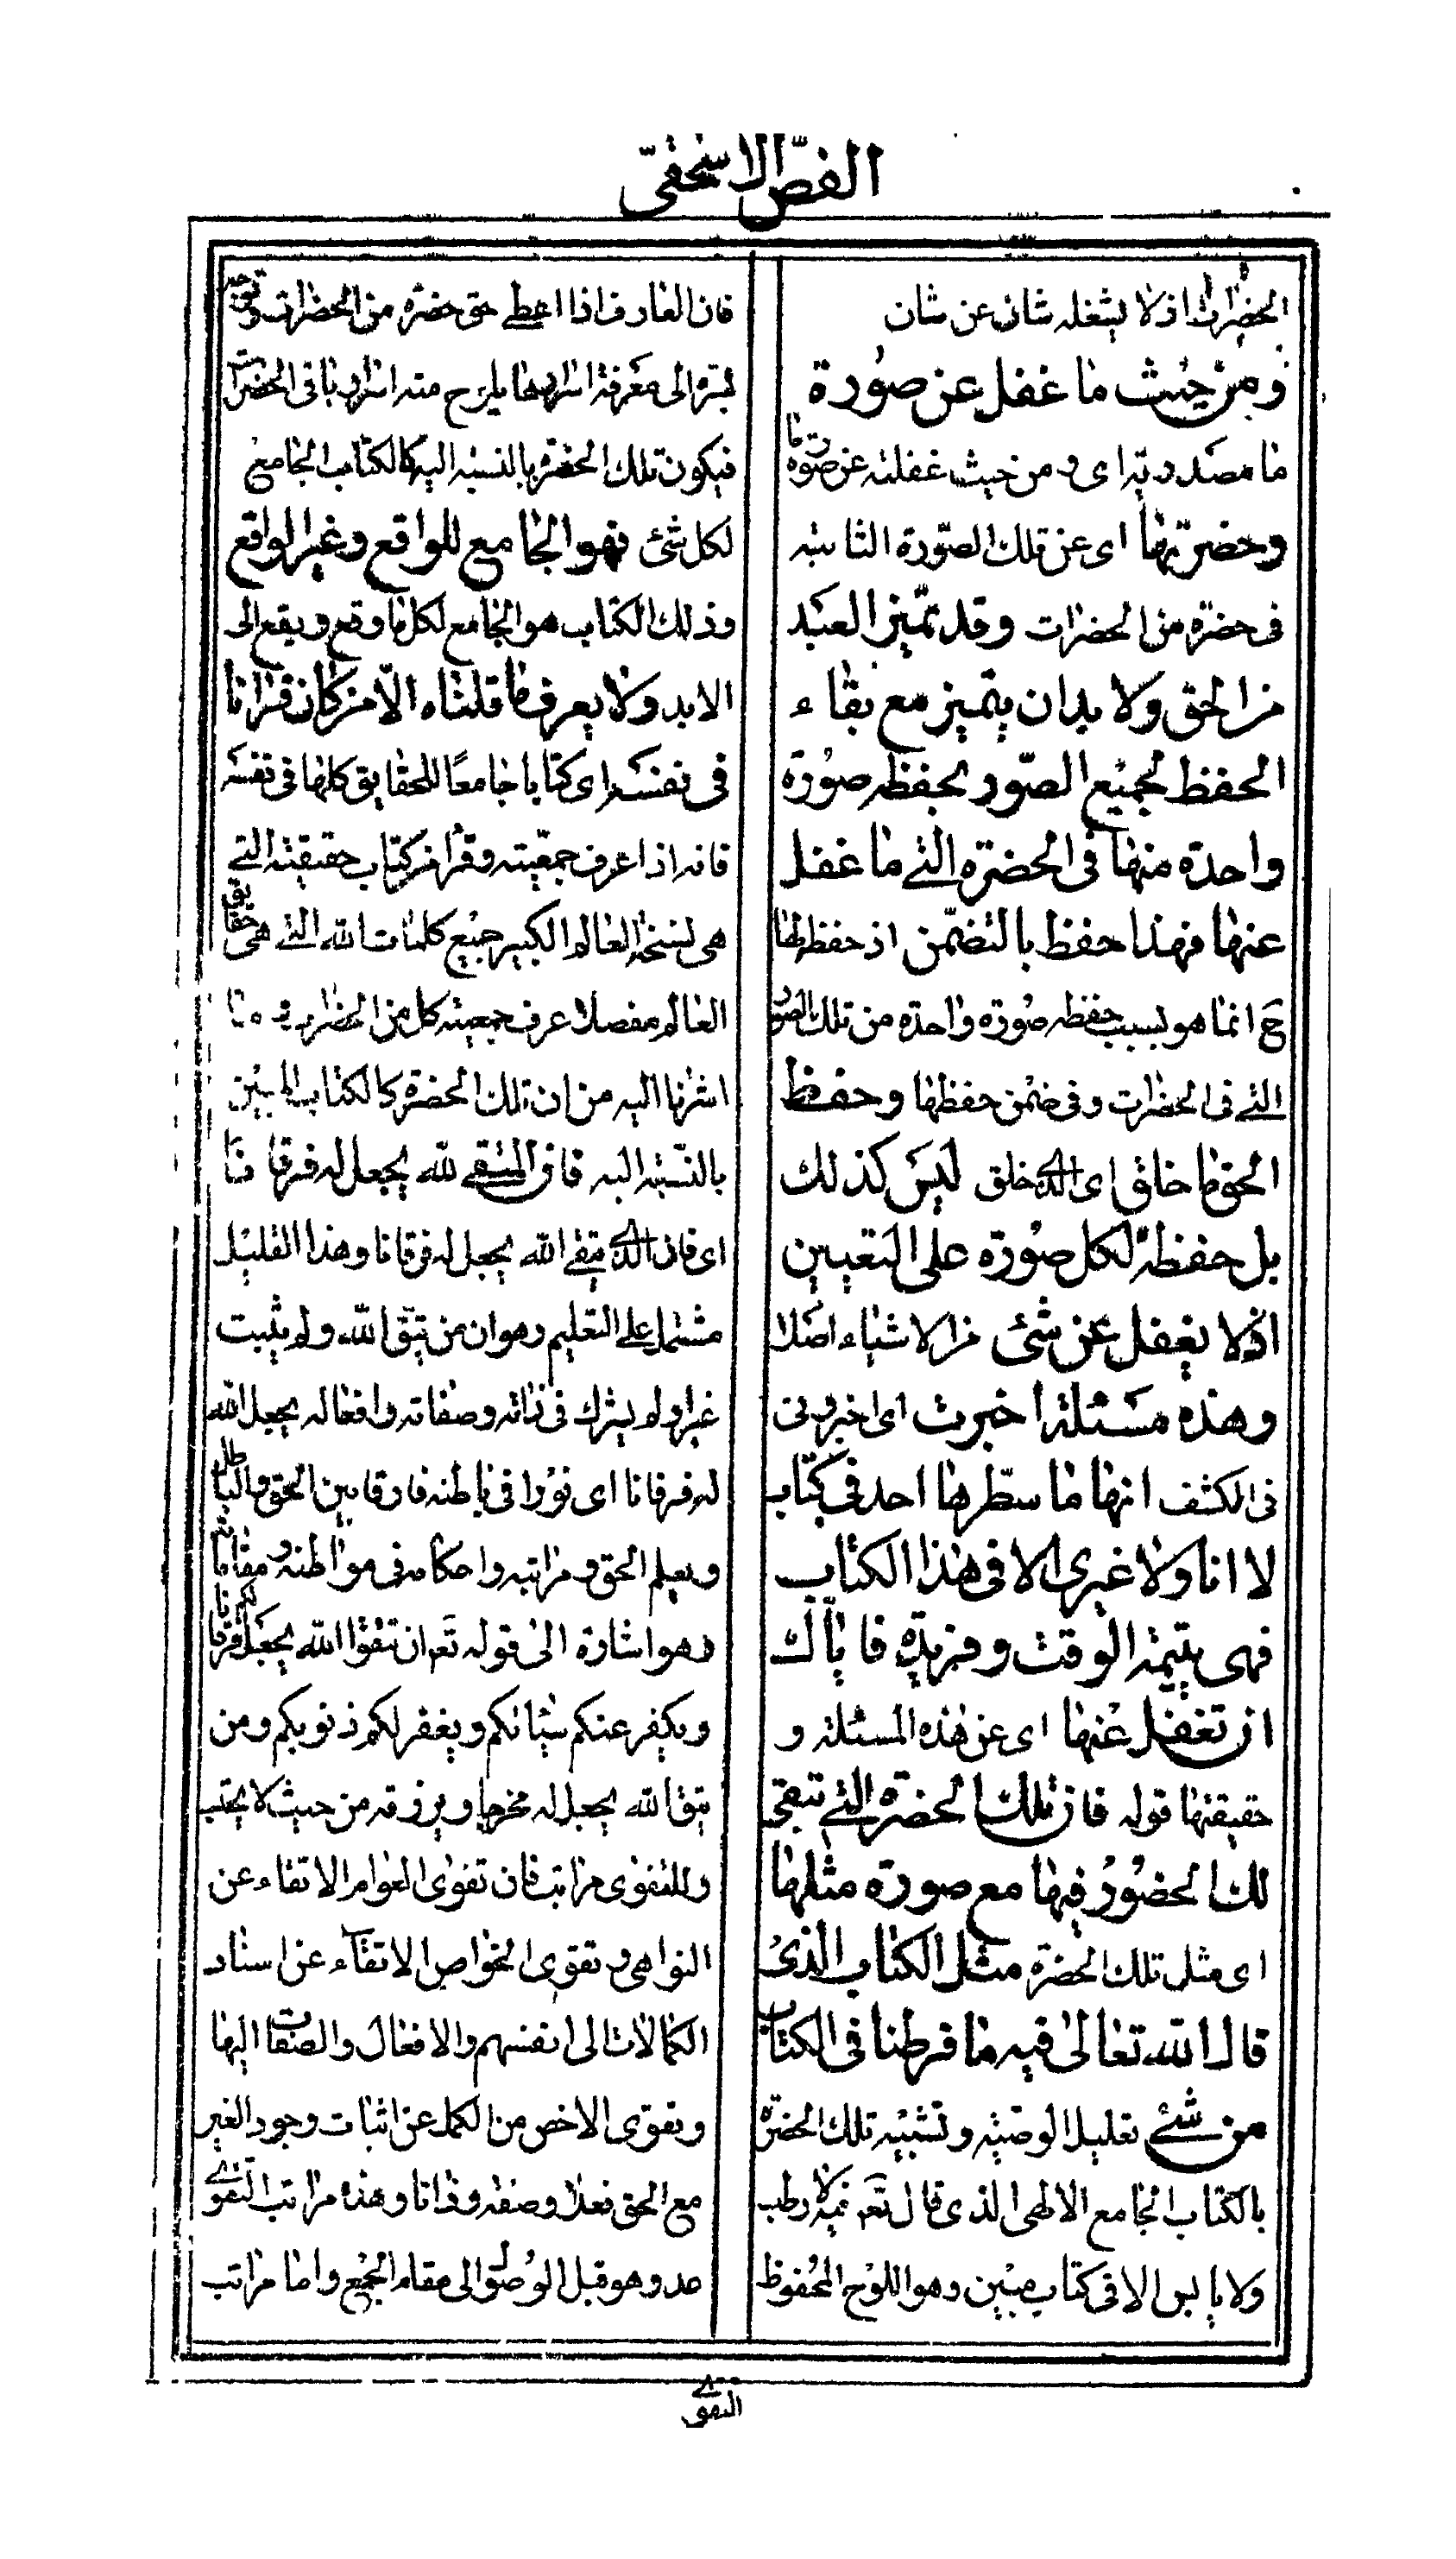 الفصّ الاسحقىّ
الحضرات اذ لا يشغله شان عن شان
ومن حيث ما غفل عن صورة
ما مصدريّه اى ومن حيث غفلته عن صورة ما
وحضرتها اى عن تلك الصّورة الثابتة
فى حضرة من الحضرات وقد تميّز العبد
من الحق ولا بد ان يتميز مع بقاء
الحفظ لجميع الصّور بحفظه صورة
واحدة منها فى الحضرة التے ما غفل
عنها فهذا حفظ بالتضمّن اذ حفظه لها
ح انما هو بسبب حفظه صورة واحدة من تلك الصور
التے فى الحضرات وفى ضمن حفظها وحفظ
الحق ما خلق اى الذے خلق ليس كذلك
بل حفظه لكل صورة على التعيين
اذ لا يغفل عن شئ من الاشياء اصلا
وهذه مسئلة اخبرت اى اخبرونى
فى الكشف انها ما سطّرها احد فى كتاب
لا انا ولا غيرى الا فى هذا الكتاب
فهى يتيمة الوقت وفريدة فاياك
ان تغفل عنها اى عن هذه المسئلة و
حقيقتها قوله فان تلك الحضرة التے تبقى
لك الحضور فيها مع صورة مثلها
اى مثل تلك الحضرة مثل الكتاب الذى
قال الله تعالى فيه ما فرطنا فى الكتاب
من شئے تعليل الوصيّة وتشبيه تلك الحضرة
بالكتاب الجامع الالهى الذى قال تعم فيه لا رطب
ولا يابس الا فى كتاب مبين وهو اللوح المحفوظ
فان العارف اذا اعطے حق حضرة من الحضرات وتوجه
بسره الى معرفة اسرارها يلوح منه اسرار باقى الحضرات
فيكون تلك الحضرة بالنسبة اليها كالكتاب الجامع
لكل شئ فهو الجامع للواقع وغير الواقع
وذلك الكتاب هو الجامع لكل ما وقع ويقع الى
الابد ولا يعرف ما قلناه الّا من كان قرانا
فى نفسه اى كتابا جامعًا للحقايق كلها فى نفسه
فانه اذا عرف جمعيّته وقرأ من كتاب حقيقته التے
هى نسخة العالم الكبير جميع كلمات الله التے هى حقايق
العالم مفصلا عرف جمعية كل من الحضرات و ما
اشرنا اليه من ان تلك الحضرة كالكتاب المبين
بالنّسبة اليه فان المتقے لله يجعل له فرقانا
اى فان الذے يتقے الله يجعل له فرقانا وهذا القليل
مشتمل علے التعليم وهو ان من يتّق الله ولم يثبت
غيرا ولم يشرك فى ذاته وصفاته وافعاله يجعل الله
له فرقانا اى نورا فى باطنه فارقا بين الحق والباطل
ويعلم الحق ومراتبه واحكامه فى مواطنه ومقاماته
وهو اشارة الى قوله تعم ان تتقوا الله يجعل لكم فرقانا
ويكفر عنكم سيئاتكم ويغفر لكم ذنوبكم ومن
يتق الله يجعل له مخرجا ويرزقه من حيث لا يحتسب
وللتقوى مراتب فان تقوى العوام الاتقاء عن
النواهى وتقوى الخواص الاتقاء عن اسناد
الكمالات الى انفسهم والافعال والصفات اليها
وتقوى الاخص من الكمل عن اثبات وجود الغير
مع الحق فعلا وصفة وذاتا وهذه مراتب التقوے
وهو قبل الوصول الى مقام الجمع واما مراتب
التقوے